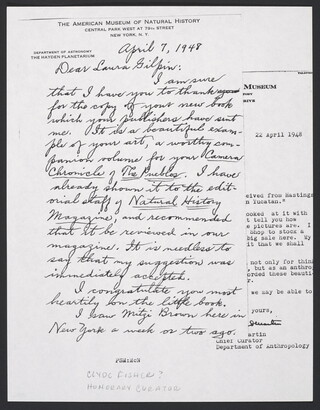 THE AMERICAN MUSEUM OF NATURAL HISTORY
CENTRAL PARK WEST AT 79TH STREET
NEW YORK, N. Y.
DEPARTMENT OF ASTRONOMY
THE HAYDEN PLANETARIUM
April 7, 1948
Dear Laura Gilpin:
I am sure
that I have you to thank
for the copy of your new book
which your publishers have sent
me. It is a beautiful exam-
ple of your art, a worthy com-
panion volume for your Camera
Chronicle of The Pueblos. I have
already shown it to the edit-
orial staff of Natural History
Magazine, and recommended
that it be reviewed in our
magazine. It is needless to
say that my suggestion was
immediately accepted.
I congratulate you most
heartily on the little book.
I saw Mitzi Brown here in
New York a week or two ago.
CLYDE FISHER?
HONORARY CURATOR
MUSEUM
22 April 1948
eived from Hastings
n Yucatan."
ooked at it with
t tell you how
e pictures are. I
Shop to stock a
big sale here. My
hat we shall
not only for thin
, but as an anthrop
orded these beauti
r.
we may be able to
yours,
artin
Chief Curator
Department of Anthropology